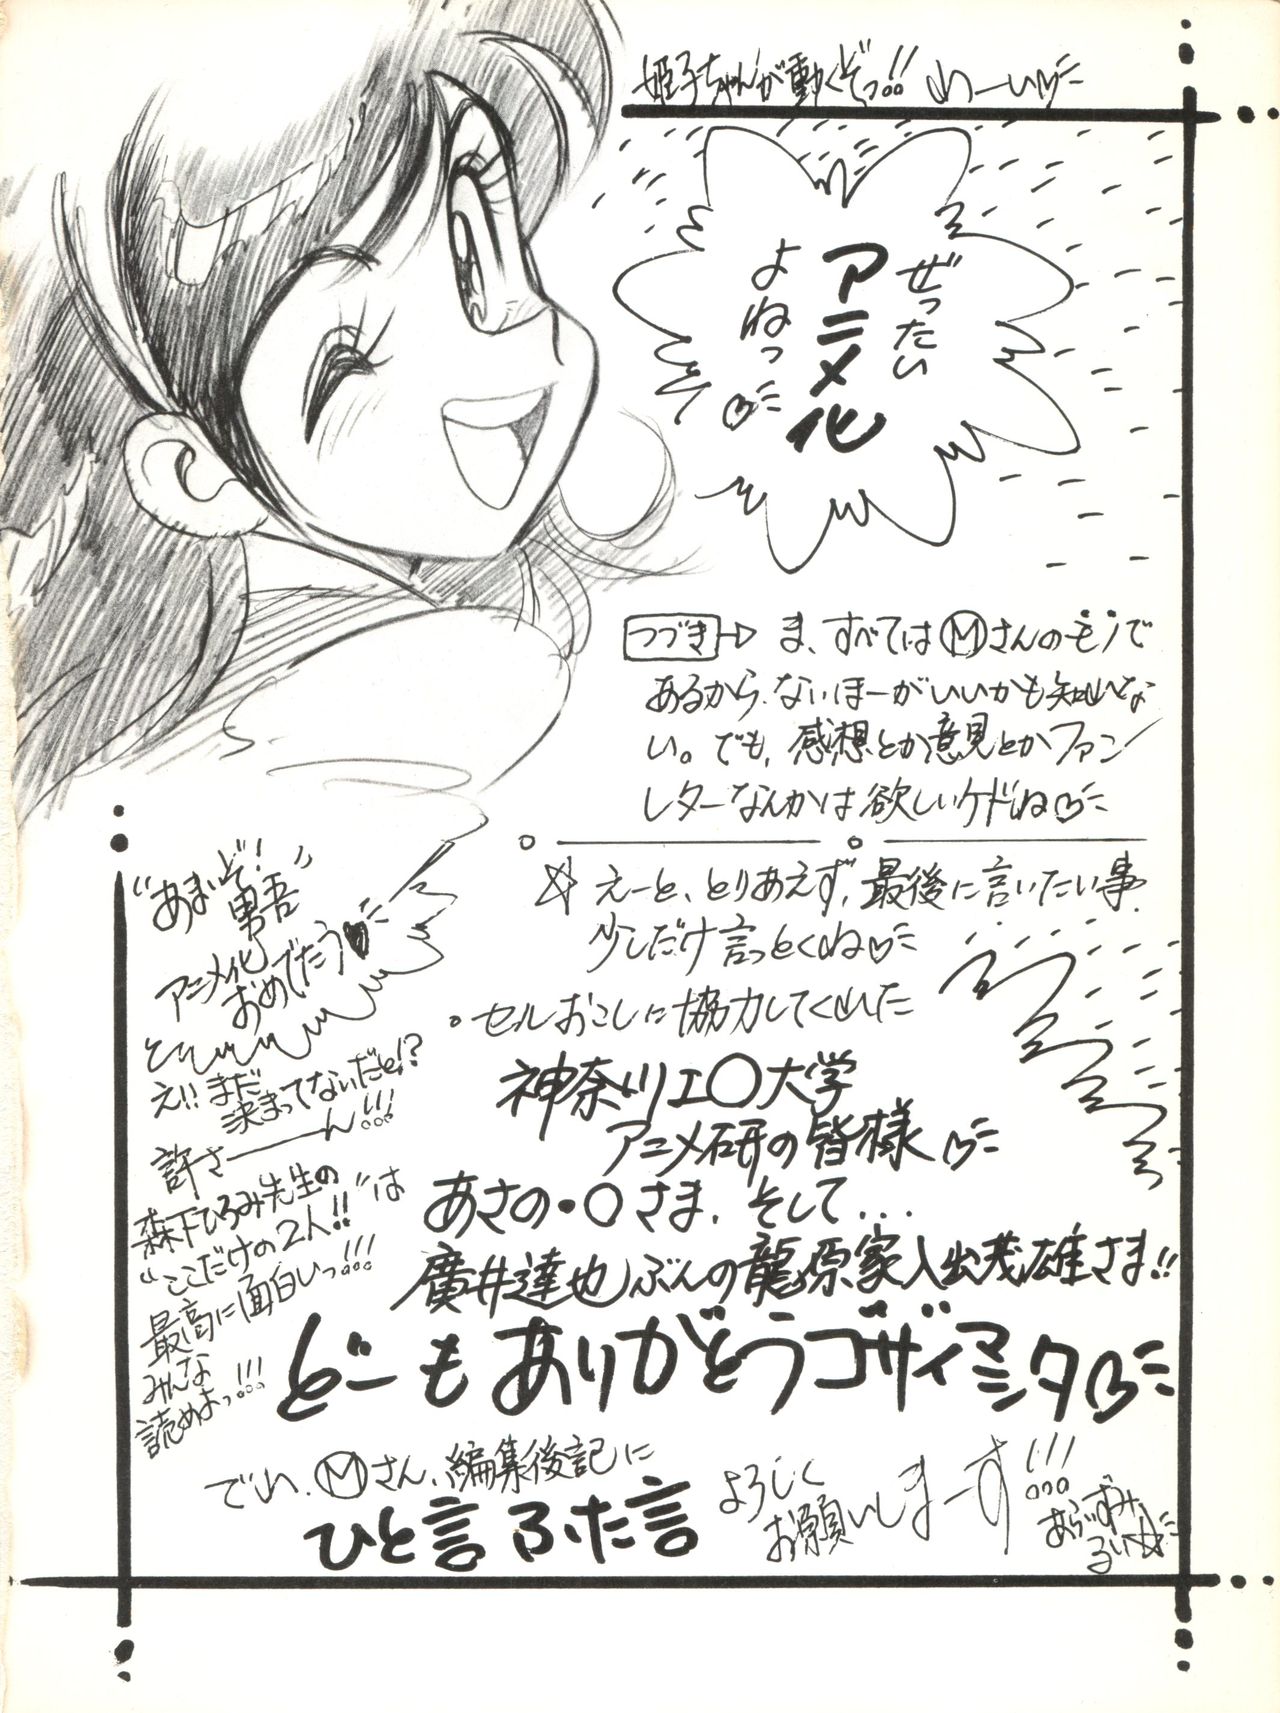 姫子ちゃんが動くぞっ!! わーい
ぜったい
アニメ化
よねっ
つづき→ ま、すべてはⓂさんのモノで
あるから、ないほーがいいかも知れな
い。でも、感想とか意見とかファン
レターなんかは欲しいケドね
☆ えーと、とりあえず、最後に言いたい事
少しだけ言っとくね
。セルおこしに協力してくれた
神奈川工〇大学
アニメ研の皆様
あさの・〇さま、そして...
廣井達也ぶんの龍原家入出茂雄さま!!
どーもありがとうゴザイマシタ
"あまいぞ!
男吾"
アニメ化
おめでたう♥
え!! まだ
決まってないだと!?
許さーーん!!!
森下ひろみ先生の
"ここだけの2人!!"は
最高に面白いっ!!!
みんな
読めよっ!!!
でわ、Ⓜさん、編集後記に
ひと言ふた言
よろしく
お願いしまーす!!!
あらいずみ
るい☆